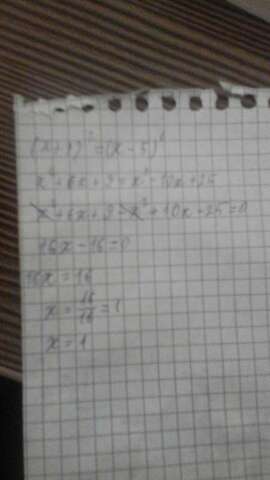 (x+3)²=(x-5)²
x²+6x+9=x²-10x+25
x²+6x+9-x²+10x-25=0
16x-16=0
16x=16
x=16/16=1
x=1